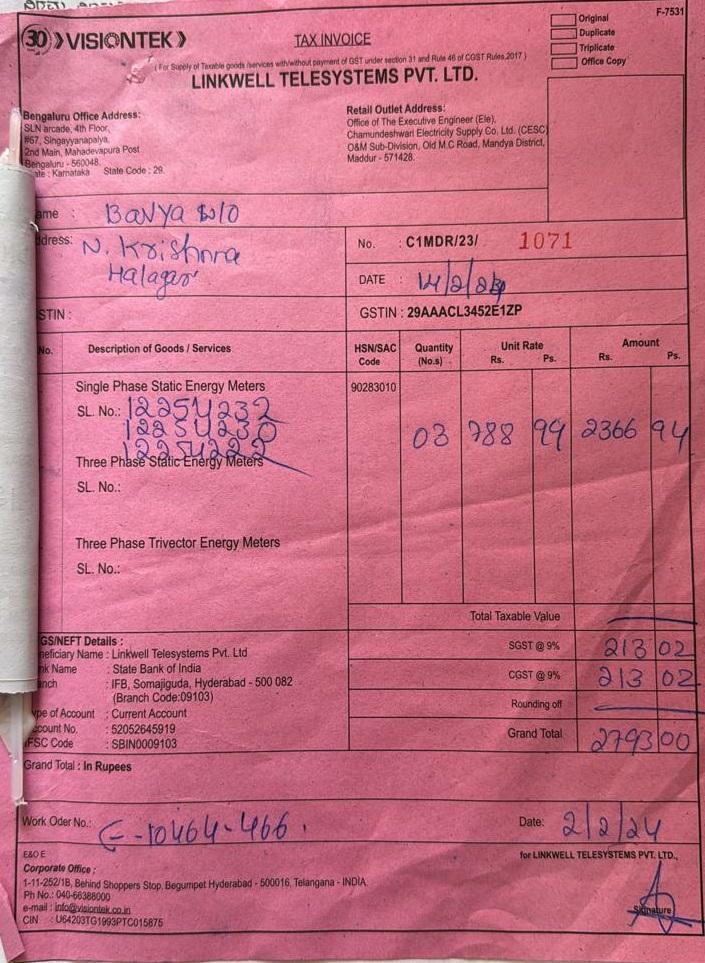 F-7531
30 VISIONTEK
TAX INVOICE
Original
Duplicate
Triplicate
Office Copy
( For Supply of Taxable goods /services with/without payment of GST under section 31 and Rule 46 of CGST Rules,2017 )
LINKWELL TELESYSTEMS PVT. LTD.
Bengaluru Office Address:
SLN arcade, 4th Floor,
#67, Singayyanapalya,
2nd Main, Mahadevapura Post
Bengaluru - 560048.
ate : Karnataka State Code : 29.
Retail Outlet Address:
Office of The Executive Engineer (Ele),
Chamundeshwari Electricity Supply Co. Ltd. (CESC)
O&M Sub-Division, Old M.C Road, Mandya District,
Maddur - 571428.
ame : Bavya W/O
ddress: N. Krishna
Halagar
No. : C1MDR/23/ 1071
DATE : 14/2/24
STIN :
GSTIN : 29AAACL3452E1ZP
No. Description of Goods / Services HSN/SAC Code Quantity (No.s) Unit Rate Rs. Ps. Amount Rs. Ps.
Single Phase Static Energy Meters 90283010
SL. No.: 12254232
12254230 03 788 99 2366 94
12254222
Three Phase Static Energy Meters
SL. No.:
Three Phase Trivector Energy Meters
SL. No.:
Total Taxable Value
SGST @ 9% 213 02
CGST @ 9% 213 02
Rounding off
Grand Total 2793 00
GS/NEFT Details :
neficiary Name : Linkwell Telesystems Pvt. Ltd
nk Name : State Bank of India
anch : IFB, Somajiguda, Hyderabad - 500 082
(Branch Code:09103)
ype of Account : Current Account
count No. : 52052645919
IFSC Code : SBIN0009103
Grand Total : In Rupees
Work Oder No.: E-10464-466.
Date: 2/2/24
E&O E
Corporate Office :
1-11-252/1B, Behind Shoppers Stop, Begumpet Hyderabad - 500016, Telangana - INDIA.
Ph No.: 040-66388000
e-mail : info@visiontek.co.in
CIN : U64203TG1993PTC015875
for LINKWELL TELESYSTEMS PVT. LTD.,
Signature